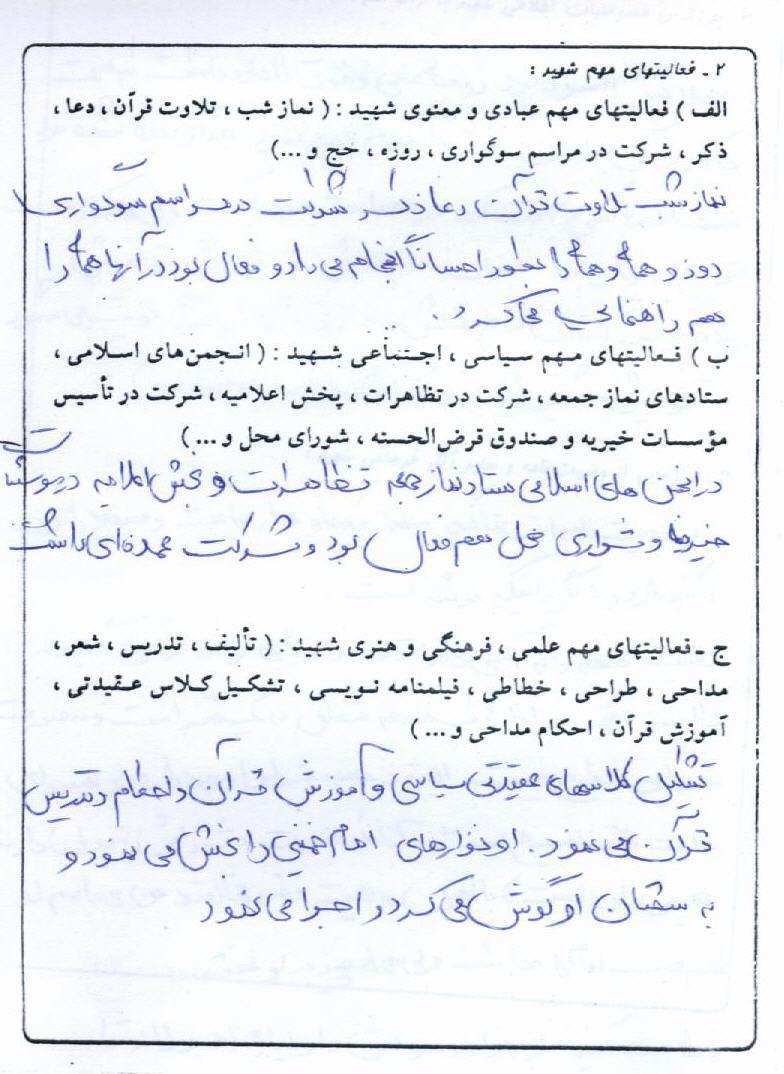 ۲ ـ فعالیتهای مهم شهید :
الف ) فعالیتهای مهم عبادی و معنوی شهید : ( نماز شب ، تلاوت قرآن ، دعا ،
ذکر ، شرکت در مراسم سوگواری ، روزه ، حج و ...)
نماز شب تلاوت قرآن دعا ذکر شرکت در مراسم سوگواری
روزه و همه و همه را بطور احساناً انجام می داد و فعال بود در آنها همه را
هم راهنمائی می کرد .
ب ) فعالیتهای مهم سیاسی ، اجتماعی شهید : ( انجمن‌های اسلامی ،
ستادهای نماز جمعه ، شرکت در تظاهرات ، پخش اعلامیه ، شرکت در تأسیس
مؤسسات خیریه و صندوق قرض‌الحسنه ، شورای محل و ... )
در انجمن های اسلامی ستاد نماز جمعه تظاهرات و پخش اعلامیه در
خیریه و شورای محل هم فعال بود و شرکت عمده‌ای داشت
ج ـ فعالیتهای مهم علمی ، فرهنگی و هنری شهید : ( تألیف ، تدریس ، شعر ،
مداحی ، طراحی ، خطاطی ، فیلمنامه نویسی ، تشکیل کلاس عقیدتی ،
آموزش قرآن ، احکام مداحی و ... )
تشکیل کلاسهای عقیدتی سیاسی و آموزش قرآن و احکام و تدریس
قرآن می نمود . او نوارهای امام خمینی را پخش می نمود و
به سخنان او گوش می کرد و اجرا می نمود